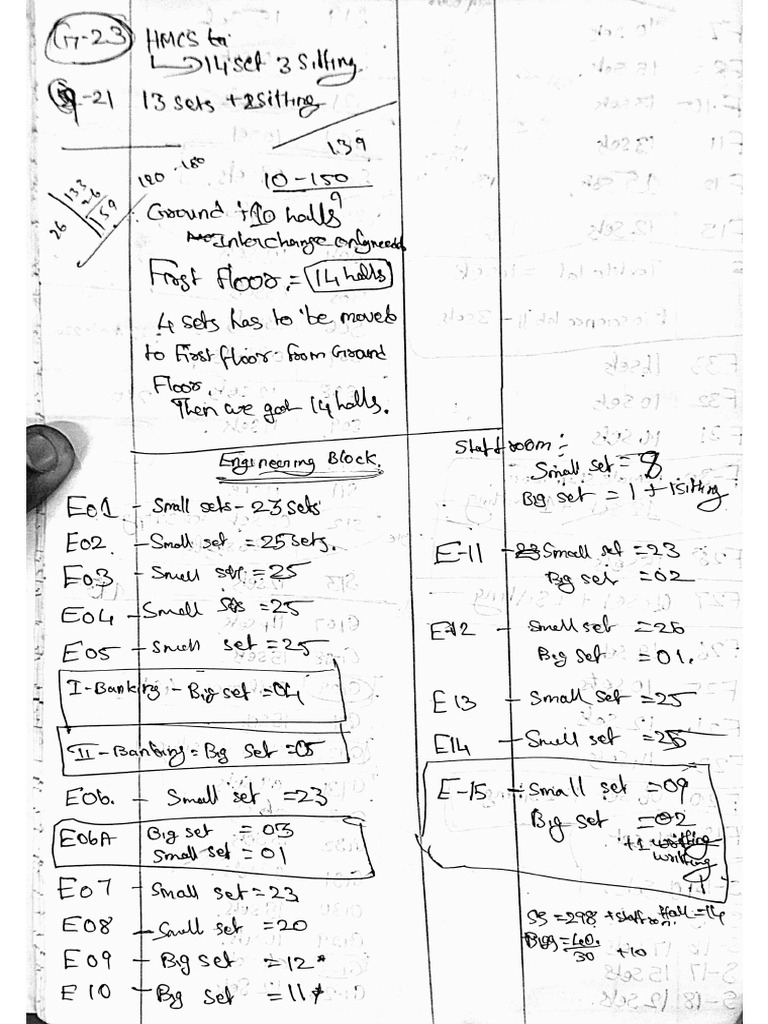 G-23 HMCS
14 set 3 Sitting
-21 13 sets + 2 sitting
139
120 - 180
133
26
159
26
10-150
Ground + 10 halls
9
Interchange
First floor = 14 halls
4 sets has to be moved
to First floor from Ground
Floor.
Then we got 14 halls.
Engineering Block.
E01 - Small sets - 23 sets
E02. - Small set = 25 sets.
E03 - Small set = 25
E04 - Small sets = 25
E05 - Small set = 25
I - Banking - Big set = 04
II - Banking = Big set = 05
E06. - Small set = 23
E06A Big set = 03
Small set = 01
E07 - Small set = 23
E08 - Small set = 20
E09 - Big set = 12*
E10 - Big set = 11*
Staff room :-
Small set = 8
Big set = 1 + 1 sitting
E-11 - 23 Small set = 23
Big set = 02
E-12 - Small set = 26
Big set = 01.
E13 - Small set = 25
E14 - Small set = 25
E-15 - Small set = 09
Big set = 02
+1 writting
writting
SS = 298 + staff room Hall = 14
Bigg = 40.
30 + 10